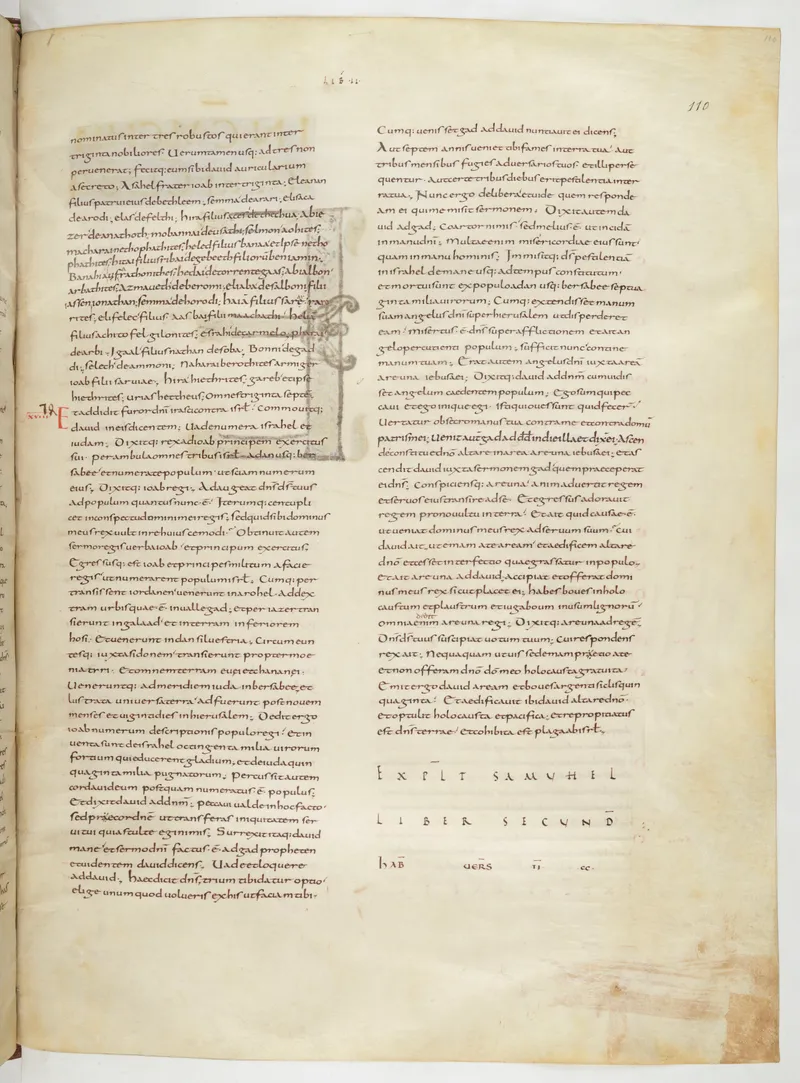 LIB · II ·
110
nominatus inter tres robustos qui erant inter
triginta nobiliores. Uerumtamen usq: ad tres non
peruenerat; fecitq: eum sibi dauid auricularium
a secreto, Asahel frater ioab inter triginta; eleanan
filius patrui eius de bethleem, semma de arari, elisaca
de arodi, eles de felthi, hira filius acces de thechua, Abie
zer de anathoth; mobannai de usathi; selmon ahohites;
macharai netophathites; heled filius banaa et ipse netho
phathites; hithai filius ribai de gebeeth filiorum beniamin,
Banahi affrathonites; heddai de torrente gaas; abialbon
arbathites; azmaueth de beromi; eliaba de salboni filii
iassen ionathan; semma de horodi; haiam filius sarer arar
rites; elifelec filius aasbai filii maachathi; heliam
filius achitofel gilonites; esrahi de carmelo, pharai
de arbi; Igaal filius nathan de soba, Bonni de gad
di; selech de ammoni; Naharai berothites armiger
ioab filii saruiae; hira hiethrites; gareb et ipse
hiethrites; urias hetheus; omnes triginta septe.
Et addidit furor dni irasci contra isrl. Commouitq:
dauid in eis dicentem; Uade numera israhel et
iudam; Dixitq: rex ad ioab principem exercitus
sui perambula omnes tribus isrl a dan usq: ber
sabee et numerate populum ut sciam numerum
eius; Dixitq: ioab regi; Adaugeat dns ds tuus
ad populum quantus nunc e. Iterumq: centupli
cet in conspectu domini mei regis; sed quid sibi dominus
meus rex uult in re huiuscemodi; Obtinuit autem
sermo regis uerba ioab et principum exercitus;
Egressusq: est ioab et principes militum a facie
regis ut numerarent populum isrl. Cumq: per
transissent iordanen uenerunt in arohel ad dex
tram urbis quae e in ualle gad; et per iazer tran
sierunt in galaad et in terram inferiorem
hosi. Et uenerunt in dan siluestria; Circumeun
tesq: iuxta sidonem transierunt prope moe
nia tyri. et omnem terram euei et chananei.
Ueneruntq: ad meridiem iuda in bersabee; et
lustrata uniuersa terra adfuerunt post nouem
menses et uiginti dies in hierusalem; Dedit ergo
ioab numerum descriptionis populo regi et in
uenta sunt de israhel octingenta milia uirorum
fortium qui educerent gladium; et de iuda quin
quaginta milia pugnatorum; percussit autem
cor dauid eum postquam numeratus e populus;
Et dixit dauid ad dnm; peccaui ualde in hoc facto
sed precor dne ut transferas iniquitatem ser
ui tui quia stulte egi nimis; Surrexit itaq: dauid
mane et sermo dni factus e ad gad propheten
et uidentem dauid dicens; Uade et loquere
ad dauid; haec dicit dns; trium tibi datur optio
elige unum quod uolueris ex his ut faciam tibi.
Cumq: uenisset gad ad dauid nuntiauit ei dicens;
Aut septem annis ueniet tibi fames in terra tua; Aut
tribus mensibus fugies aduersarios tuos et illi perse
quentur. Aut certe tribus diebus erit pestilentia in ter
ra tua; Nunc ergo delibera et uide quem responde
am ei qui me misit sermonem; Dixit autem da
uid ad gad; Coartor nimis sed melius e ut incida
in manu dni; Multae enim misericordiae eius sunt
quam in manu hominis; Immisitq: ds pestilentia
in israhel de mane usq: ad tempus constitutum
et mortui sunt ex populo a dan usq: bersabee septua
ginta milia uirorum; Cumq: extendisset manum
suam angelus dni super hierusalem ut disperderet
eam; misertus e dns super afflictionem et ait an
gelo percutienti populum; sufficit nunc contine
manum tuam; Erat autem angelus dni iuxta area
areuna iebusaei; Dixitq: dauid ad dnm cum uidis
set angelum caedentem populum; Ego sum qui pec
caui et ego inique egi; isti qui oues sunt quid fecer
Uertatur obsecro manus tua contra me et contra domu
patris mei; Uenit aut gad ad dd in die illa et dixit ei; Ascen
de constitue dno altare in area areuna iebusaei; et as
cendit dauid iuxta sermonem gad quem praeceperat
ei dns; Conspiciensq: areuna animaduertit regem
et seruos eius transire ad se. Et egressus adorauit
regem prono uultu in terra; Et ait quid causae e
ut ueniat dominus meus rex ad seruum suum; Cui
dauid ait; ut emam a te aream et aedificem altare
dno et cesset interfectio quae grassatur in populo.
Et ait areuna ad dauid; Accipiat et offerat domi
nus meus rex sicut placet ei; habes boues in holo
caustum et plaustrum et iuga boum in usum lignoru
omnia enim areuna regi; Dixitq: areuna ad rege
Dns ds tuus suscipiat uotum tuum; Cui respondens
rex ait; Nequaquam ut uis sed emam pretio a te
et non offeram dno do meo holocausta gratuita
Emit ergo dauid aream et boues argenti siclis quin
quaginta; Et aedificauit ibi dauid altare dno
et optulit holocausta et pacifica; et repropitiatus
est dns terrae et cohibita est plaga ab isrl.
EXPLT SAMUHEL
LIBER SECUND
HAB UERS II CC.